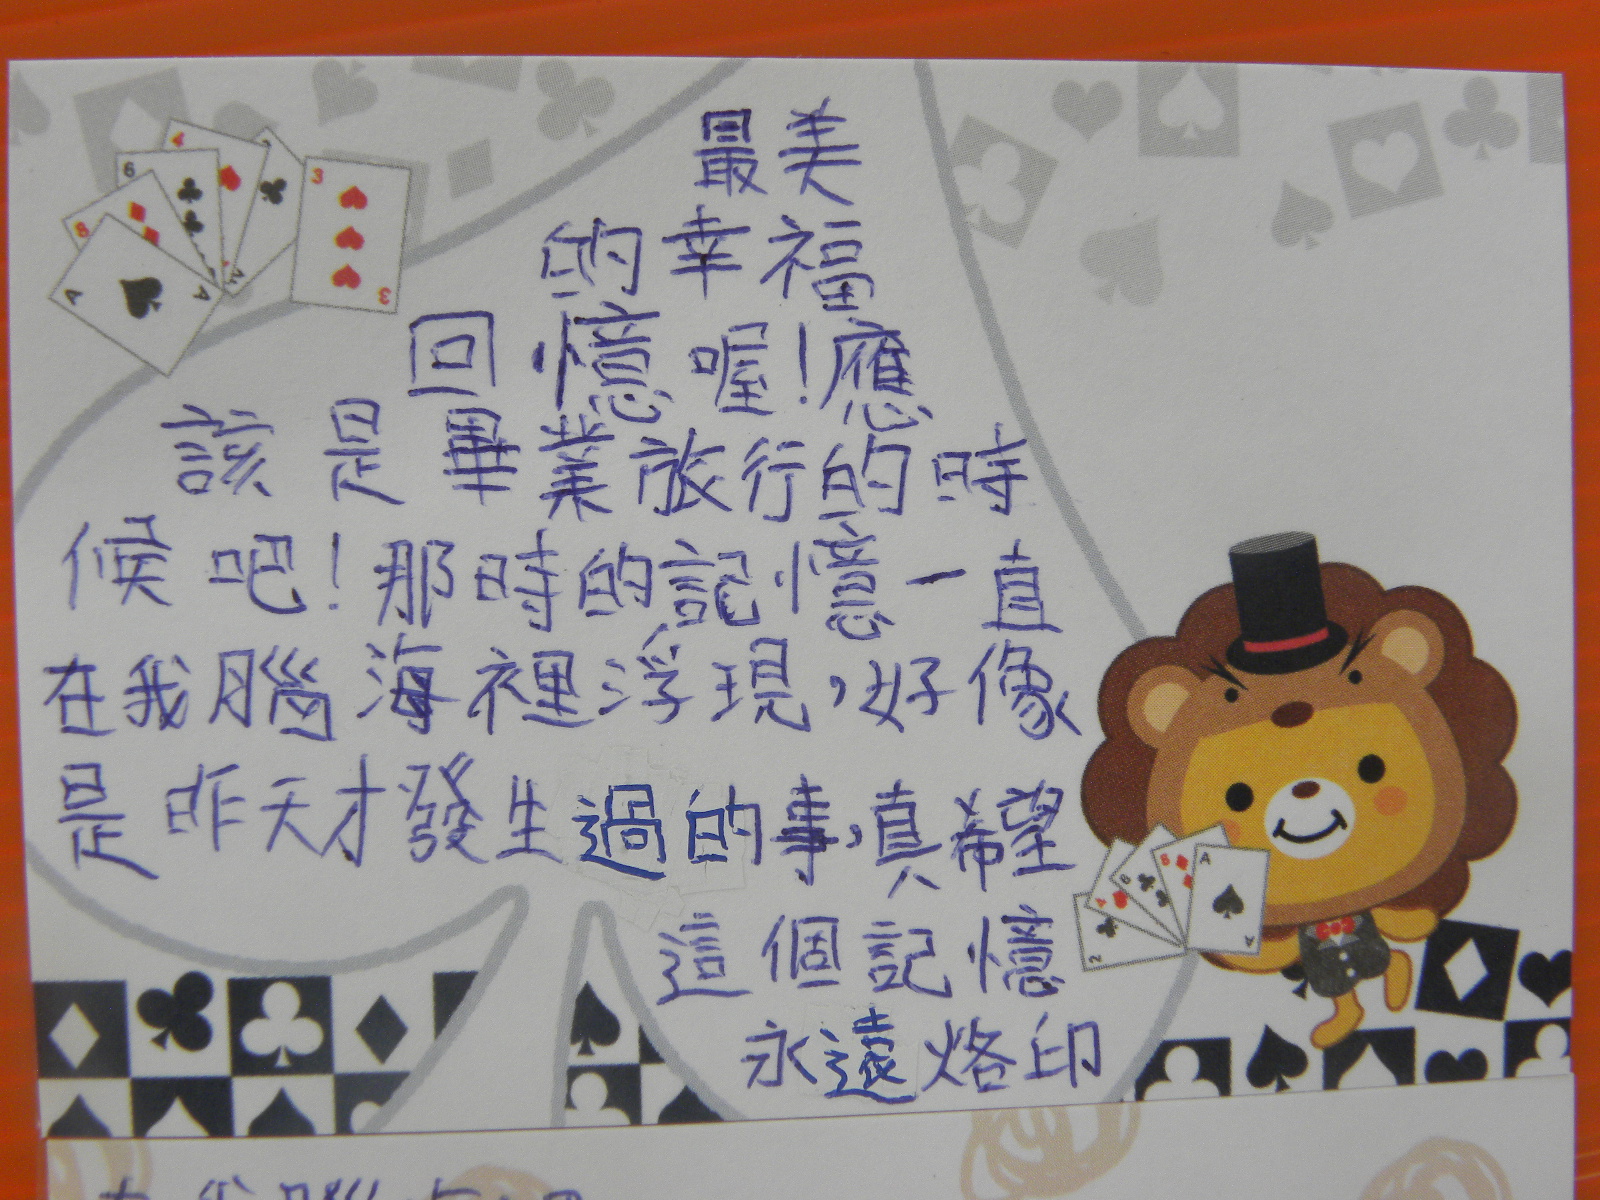 最美
的幸福
回憶喔!應
該是畢業旅行的時
候吧!那時的記憶一直
在我腦海裡浮現,好像
是昨天才發生過的事,真希望
這個記憶
永遠烙印
在我腦海裡